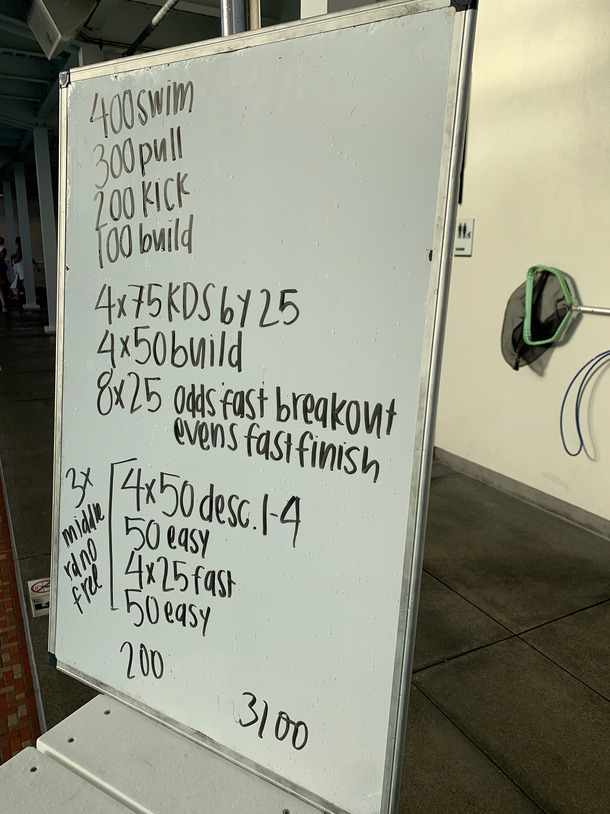 400 swim
300 pull
200 kick
100 build
4x75 KDS by 25
4x50 build
8x25 odds fast breakout
evens fast finish
3x
middle
rd no
free
4x50 desc. 1-4
50 easy
4x25 fast
50 easy
200
3100